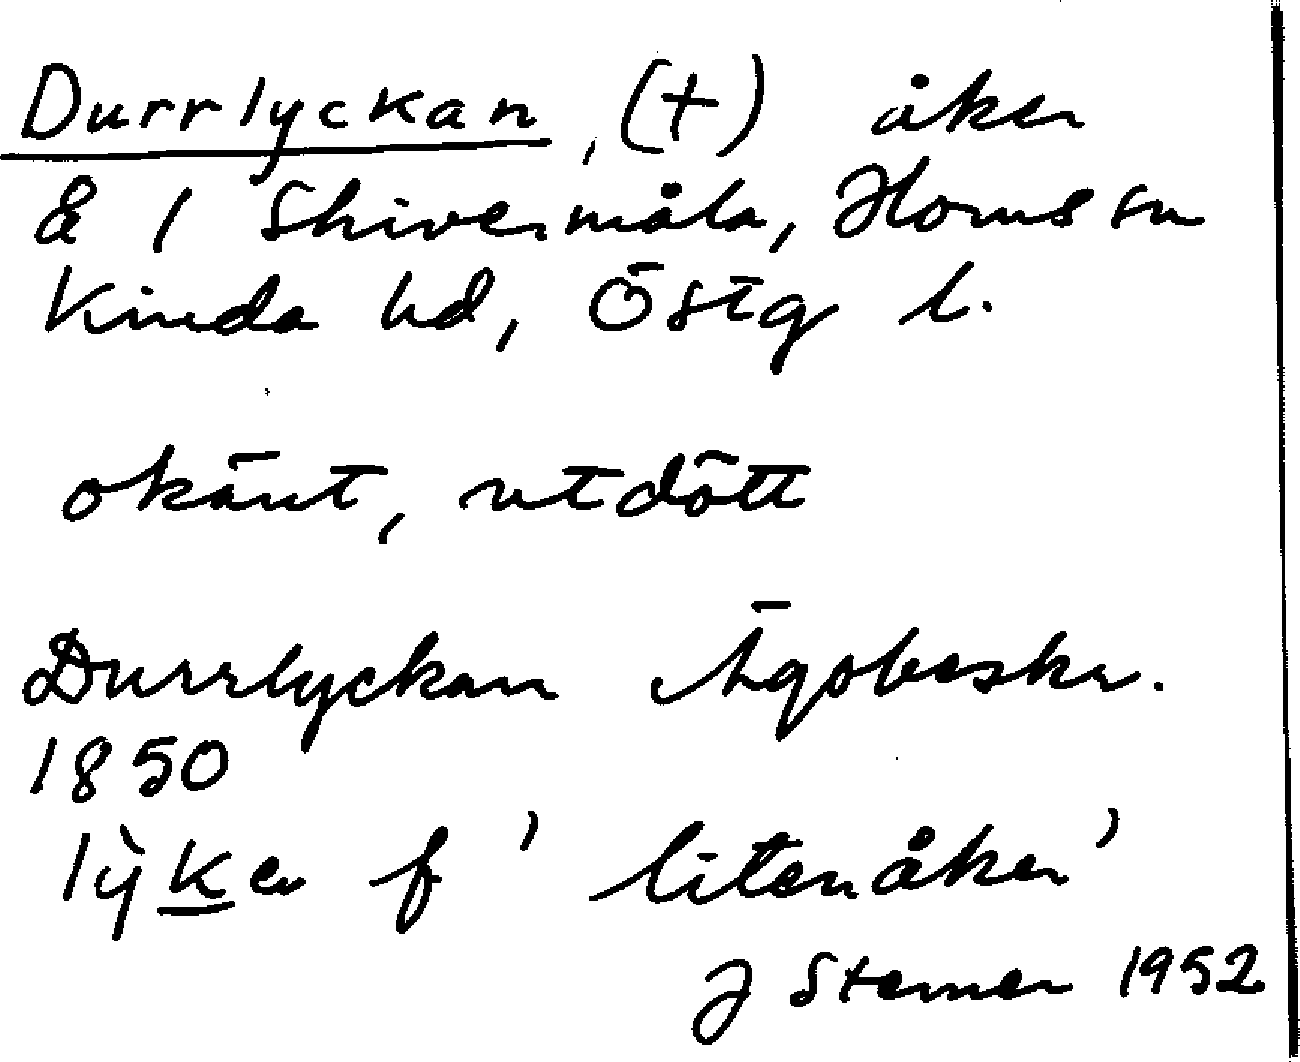 Durrlyckan, (+) åker
å 1 Skivermåla, Horns sn
Kinda hd, Östg l.
okänt, utdött
Durrlyckan Ägobeskr.
1850
lỳka f 'liten åker'
J Sterner 1952